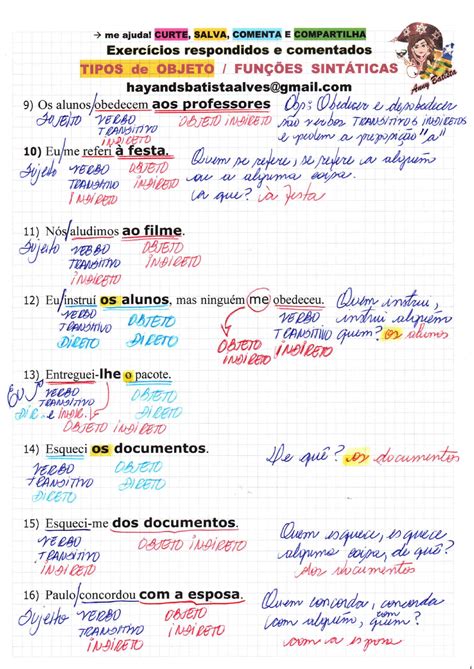 → me ajuda! CURTE, SALVA, COMENTA E COMPARTILHA
Exercícios respondidos e comentados
TIPOS de OBJETO / FUNÇÕES SINTÁTICAS
hayandsbatistaalves@gmail.com
Anny Batista
9) Os alunos/obedecem aos professores
SUJEITO VERBO TRANSITIVO INDIRETO OBJETO INDIRETO
Obs: Obedecer e desobedecer
são verbos TRANSITIVOS INDIRETOS
e pedem a preposição "a"
10) Eu/me referi à festa.
Sujeito VERBO TRANSITIVO INDIRETO OBJETO INDIRETO
Quem se refere, se refere a alguém
ou a alguma coisa.
a que? à festa
11) Nós/aludimos ao filme.
Sujeito VERBO TRANSITIVO INDIRETO OBJETO INDIRETO
12) Eu/instruí os alunos, mas ninguém me obedeceu.
VERBO TRANSITIVO DIRETO OBJETO DIRETO
OBJETO INDIRETO
VERBO TRANSITIVO INDIRETO
Quem instrui,
instrui alguém
quem? os alunos
13) Entreguei-lhe o pacote.
EU
VERBO TRANSITIVO DIR. e INDIR.
OBJETO DIRETO
OBJETO INDIRETO
14) Esqueci os documentos.
VERBO TRANSITIVO DIRETO OBJETO DIRETO
De quê? os documentos
15) Esqueci-me dos documentos.
VERBO TRANSITIVO INDIRETO OBJETO INDIRETO
Quem esquece, esquece
alguma coisa, de quê?
dos documentos
16) Paulo/concordou com a esposa.
Sujeito VERBO TRANSITIVO INDIRETO OBJETO INDIRETO
Quem concorda, concorda
com alguém, com quem?
com a esposa